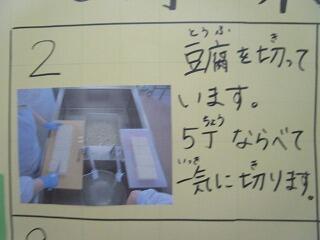 2
とうふ き
豆腐を切って
います。
ちょう
5丁ならべて
いっき き
一気に切ります。